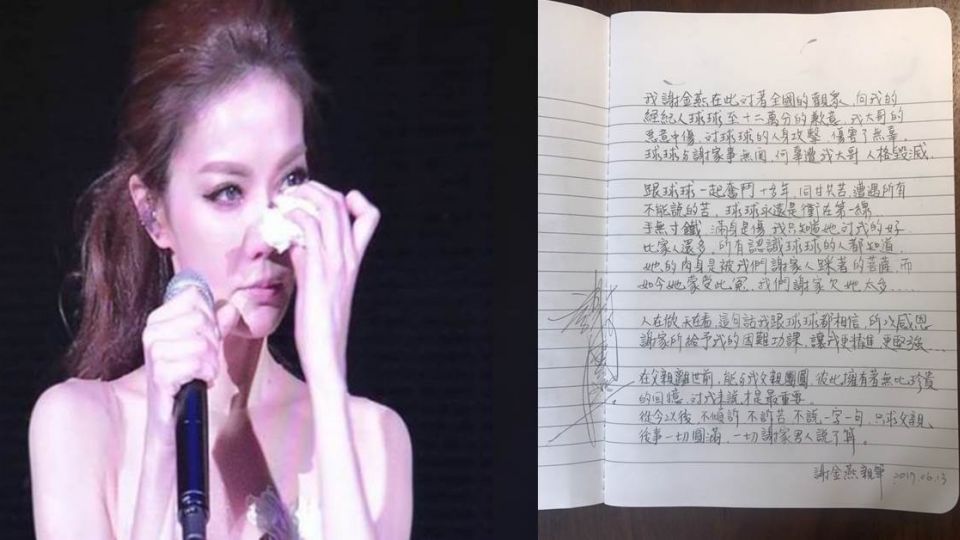 我謝金燕在此對著全國的觀眾，向我的
經紀人球球至十二萬分的歉意，我大哥的
惡意中傷，對球球的人身攻擊，傷害了無辜
球球与謝家事無關，何辜遭我大哥人格毀滅．
跟球球一起奮鬥十多年，同甘共苦，遭遇所有
不能說的苦，球球永遠是衝在第一線，
手無寸鐵，滿身是傷，我只知道她对我的好，
比家人還多，所有認識球球的人都知道，
她的肉身是被我們謝家人踩著的菩薩，而
如今她蒙受此冤，我們謝家欠她太多……
人在做，天在看，這句話我跟球球都相信，所以感恩
謝家所給予我的困難功課，讓我更精進，更堅強…
在父親離世前，能与我父親團圓，彼此擁有著無比珍貴
的回憶，对我來說，才是最重要．
從今以後，不傾訴，不訴苦，不說一字一句，只求父親
後事一切圓滿，一切謝家男人說了算。
謝金燕親筆 2017.06.13